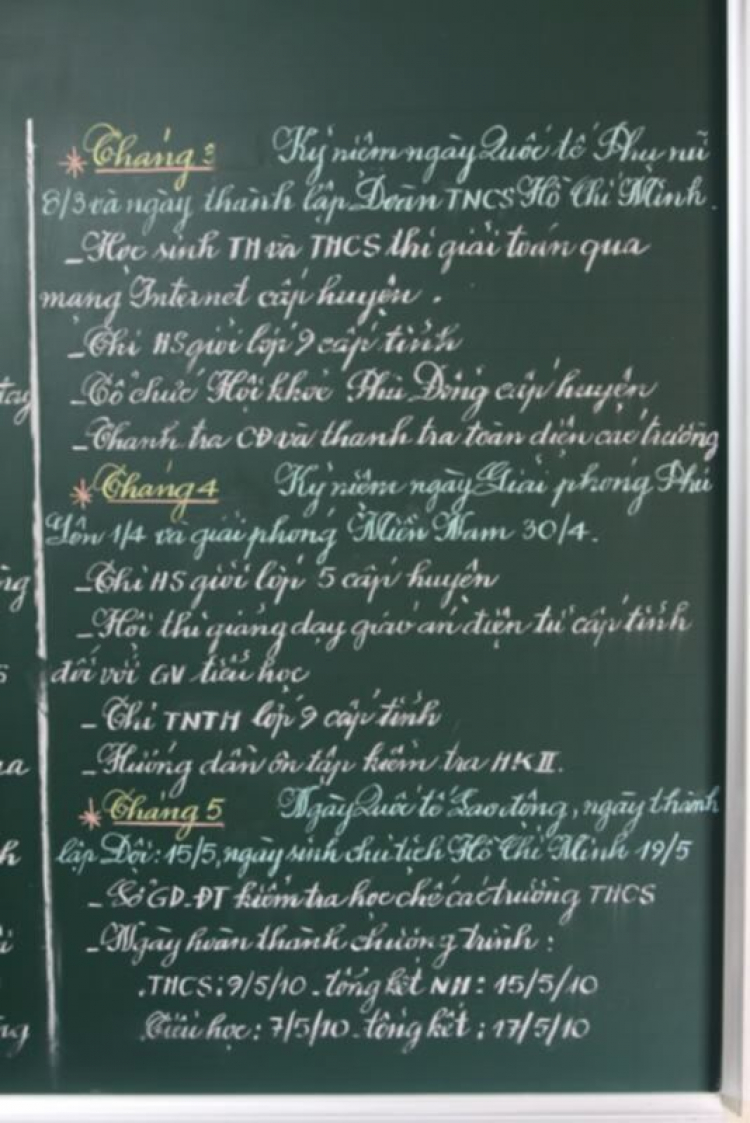 * Tháng 3 Kỷ niệm ngày Quốc tế Phụ nữ
8/3 và ngày thành lập Đoàn TNCS Hồ Chí Minh.
- Học sinh TH và THCS thi giải toán qua
mạng Internet cấp huyện.
- Thi HS giỏi lớp 9 cấp tỉnh
tay - Tổ chức Hội khoẻ Phù Đổng cấp huyện
- Thanh tra CĐ và thanh tra toàn diện các trường
* Tháng 4 Kỷ niệm ngày Giải phóng Phú
Yên 1/4 và giải phóng Miền Nam 30/4.
- Thi HS giỏi lớp 5 cấp huyện
- Hội thi giảng dạy giáo án điện tử cấp tỉnh
đối với GV tiểu học
- Thi TNTH lớp 9 cấp tỉnh
- Hướng dẫn ôn tập kiểm tra HKII.
* Tháng 5 Ngày Quốc tế Lao động, ngày thành
lập Đội: 15/5, ngày sinh chủ tịch Hồ Chí Minh 19/5
- Sở GD-ĐT kiểm tra học chế các trường THCS
- Ngày hoàn thành chương trình:
.THCS: 9/5/10. tổng kết NH: 15/5/10
.Tiểu học: 7/5/10. tổng kết: 17/5/10